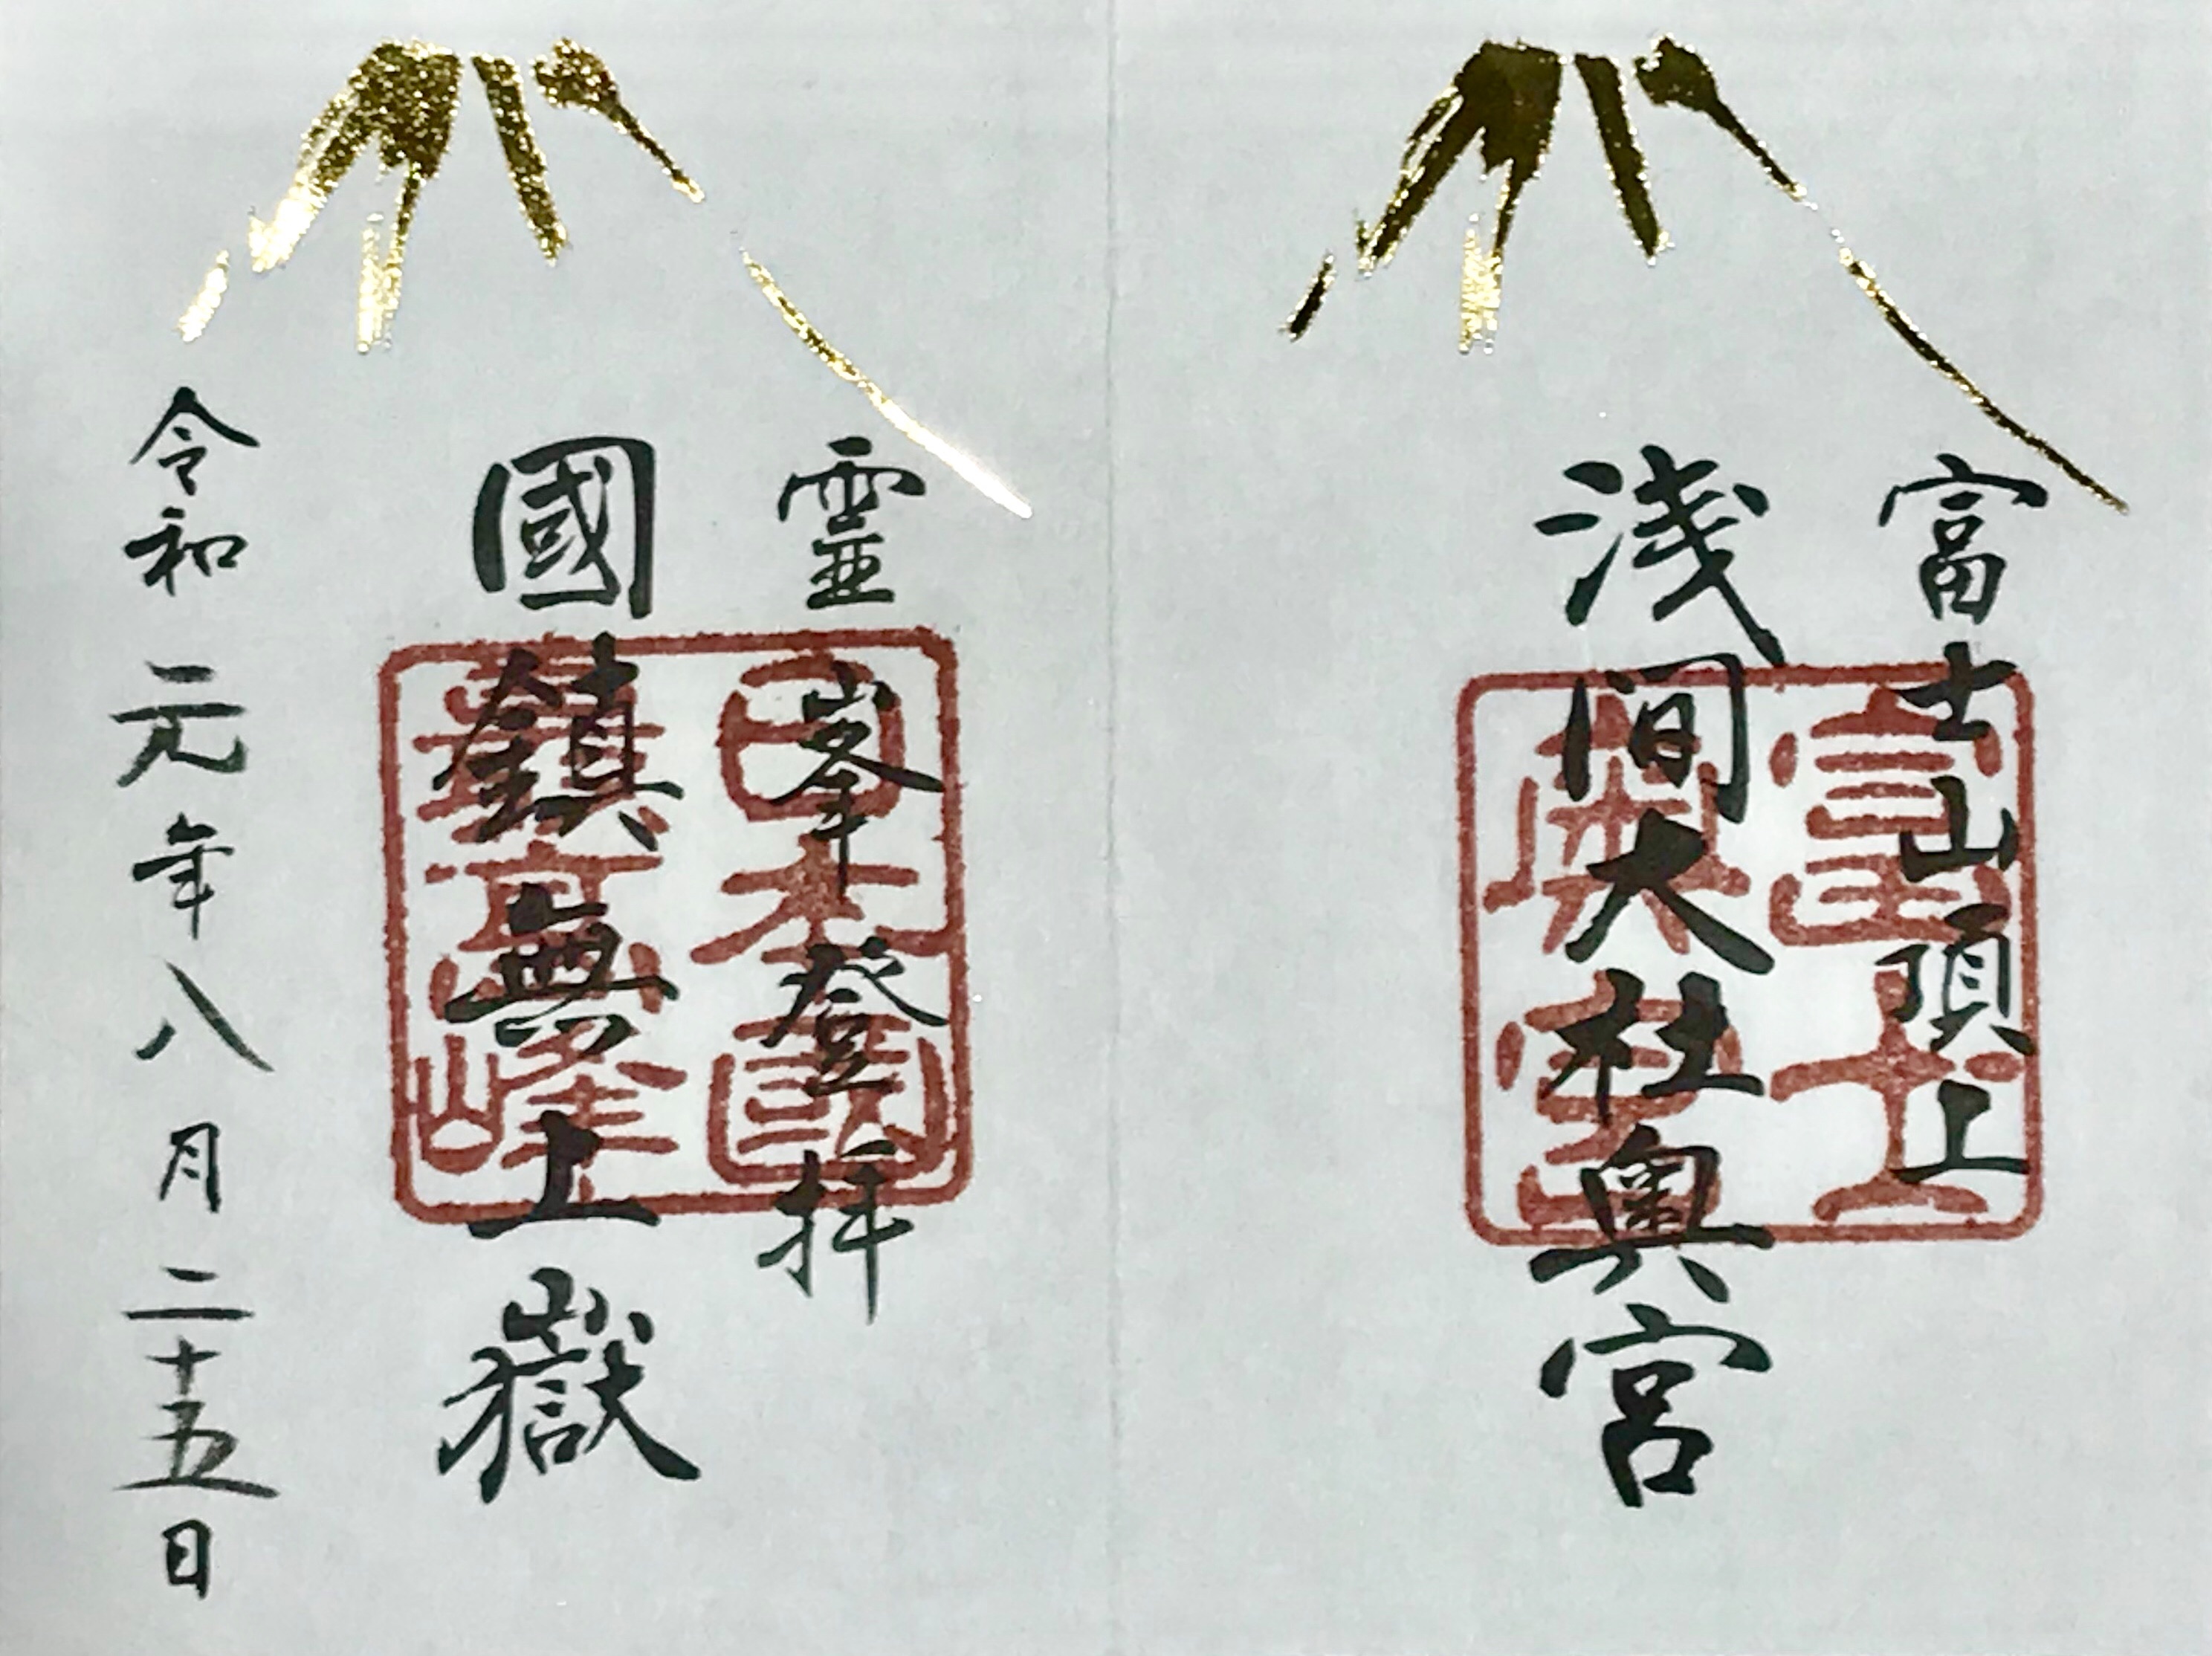 富士山頂上
浅間大社奥宮
富士
奥宮
霊峯登拝
國鎮無上嶽
日本國
最高峰
令和元年八月二十五日